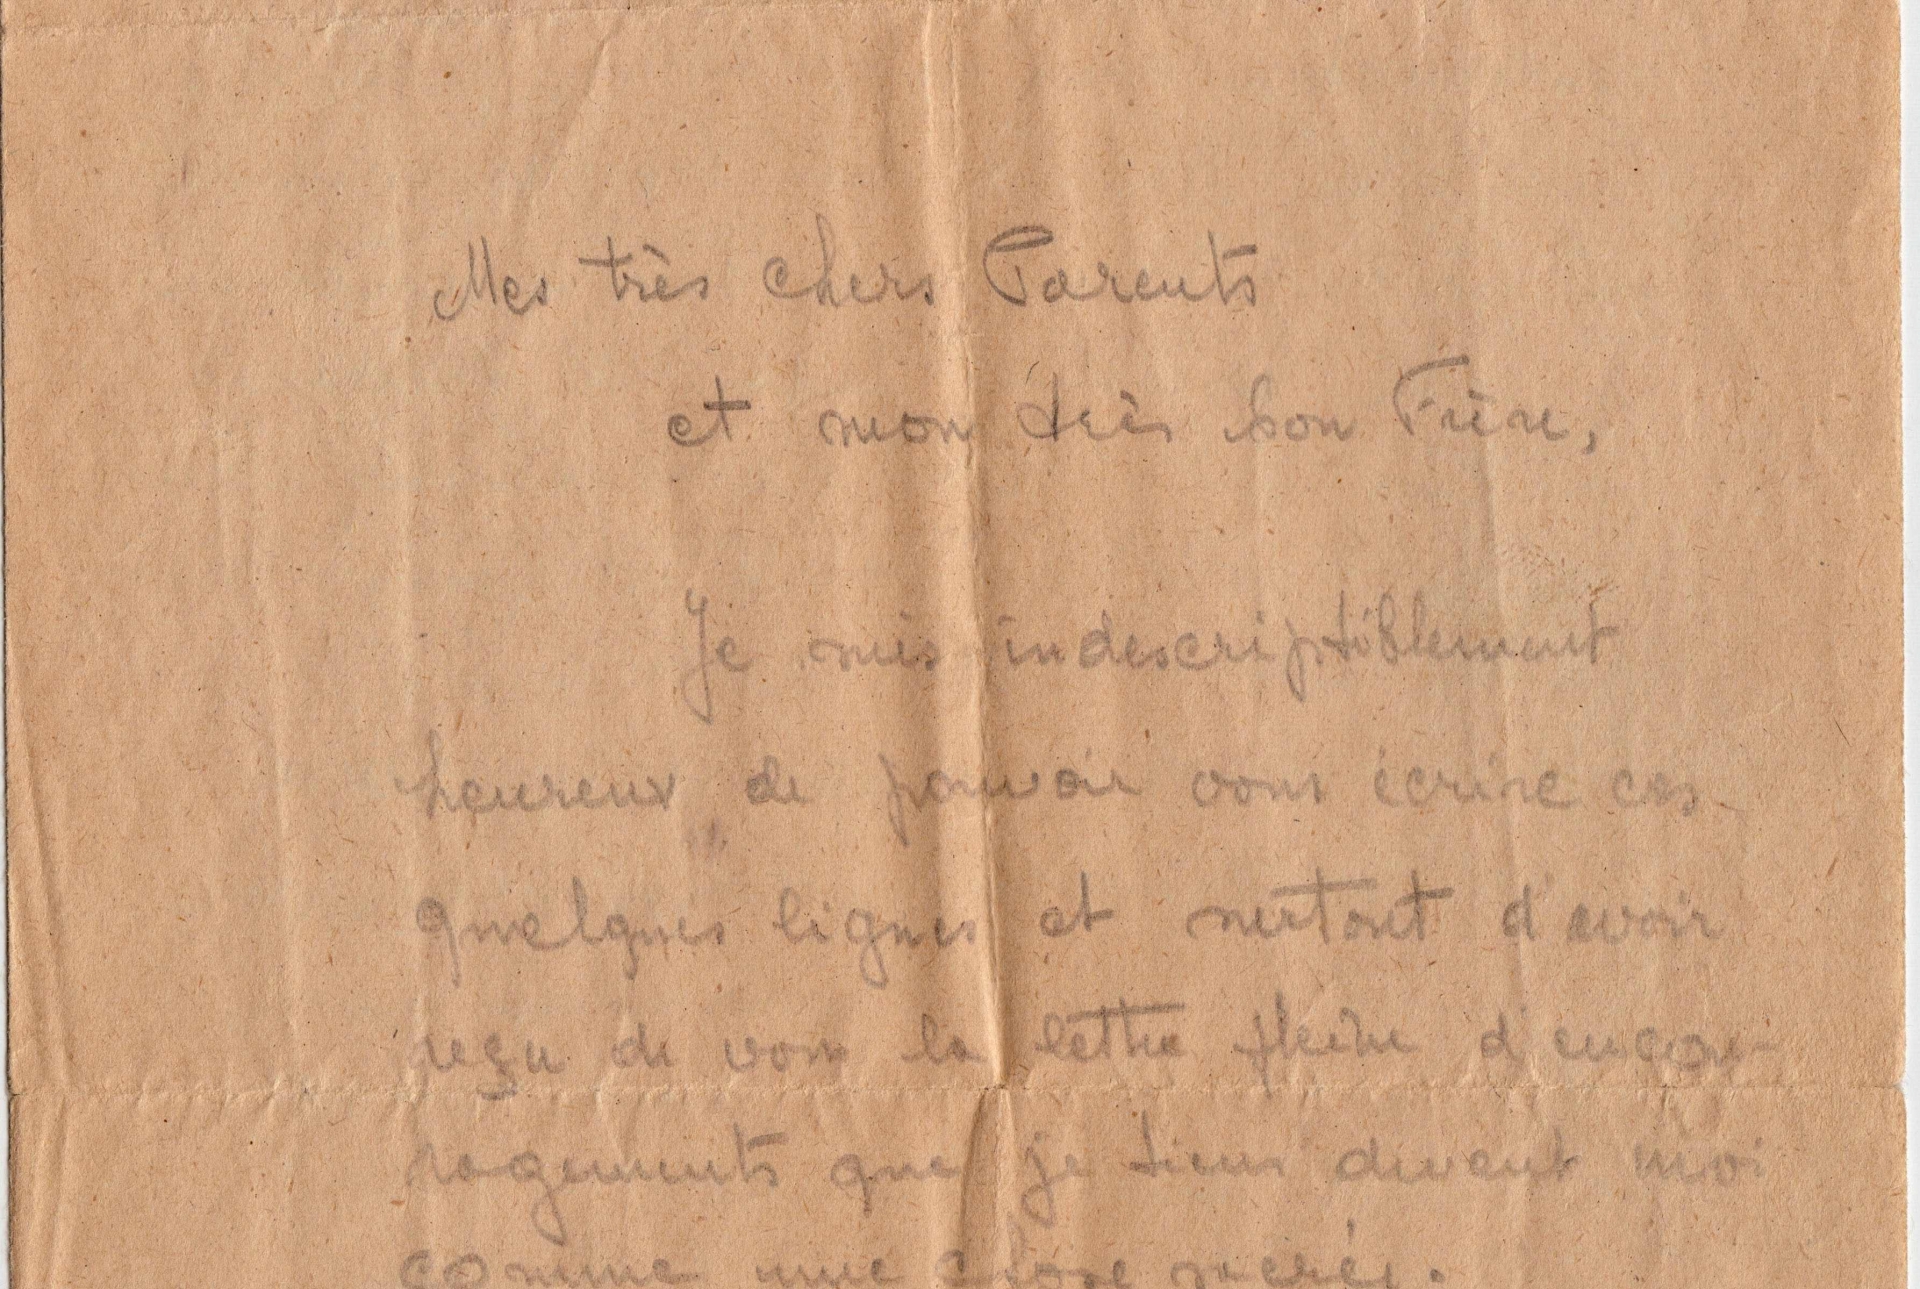 Mes très chers Parents
et mon très bon Frère,
Je suis indescriptiblement
heureux de pouvoir vous écrire ces
quelques lignes et surtout d'avoir
reçu de vous la lettre pleine d'encou-
ragements que je tiens devant moi
comme une chose sacrée.